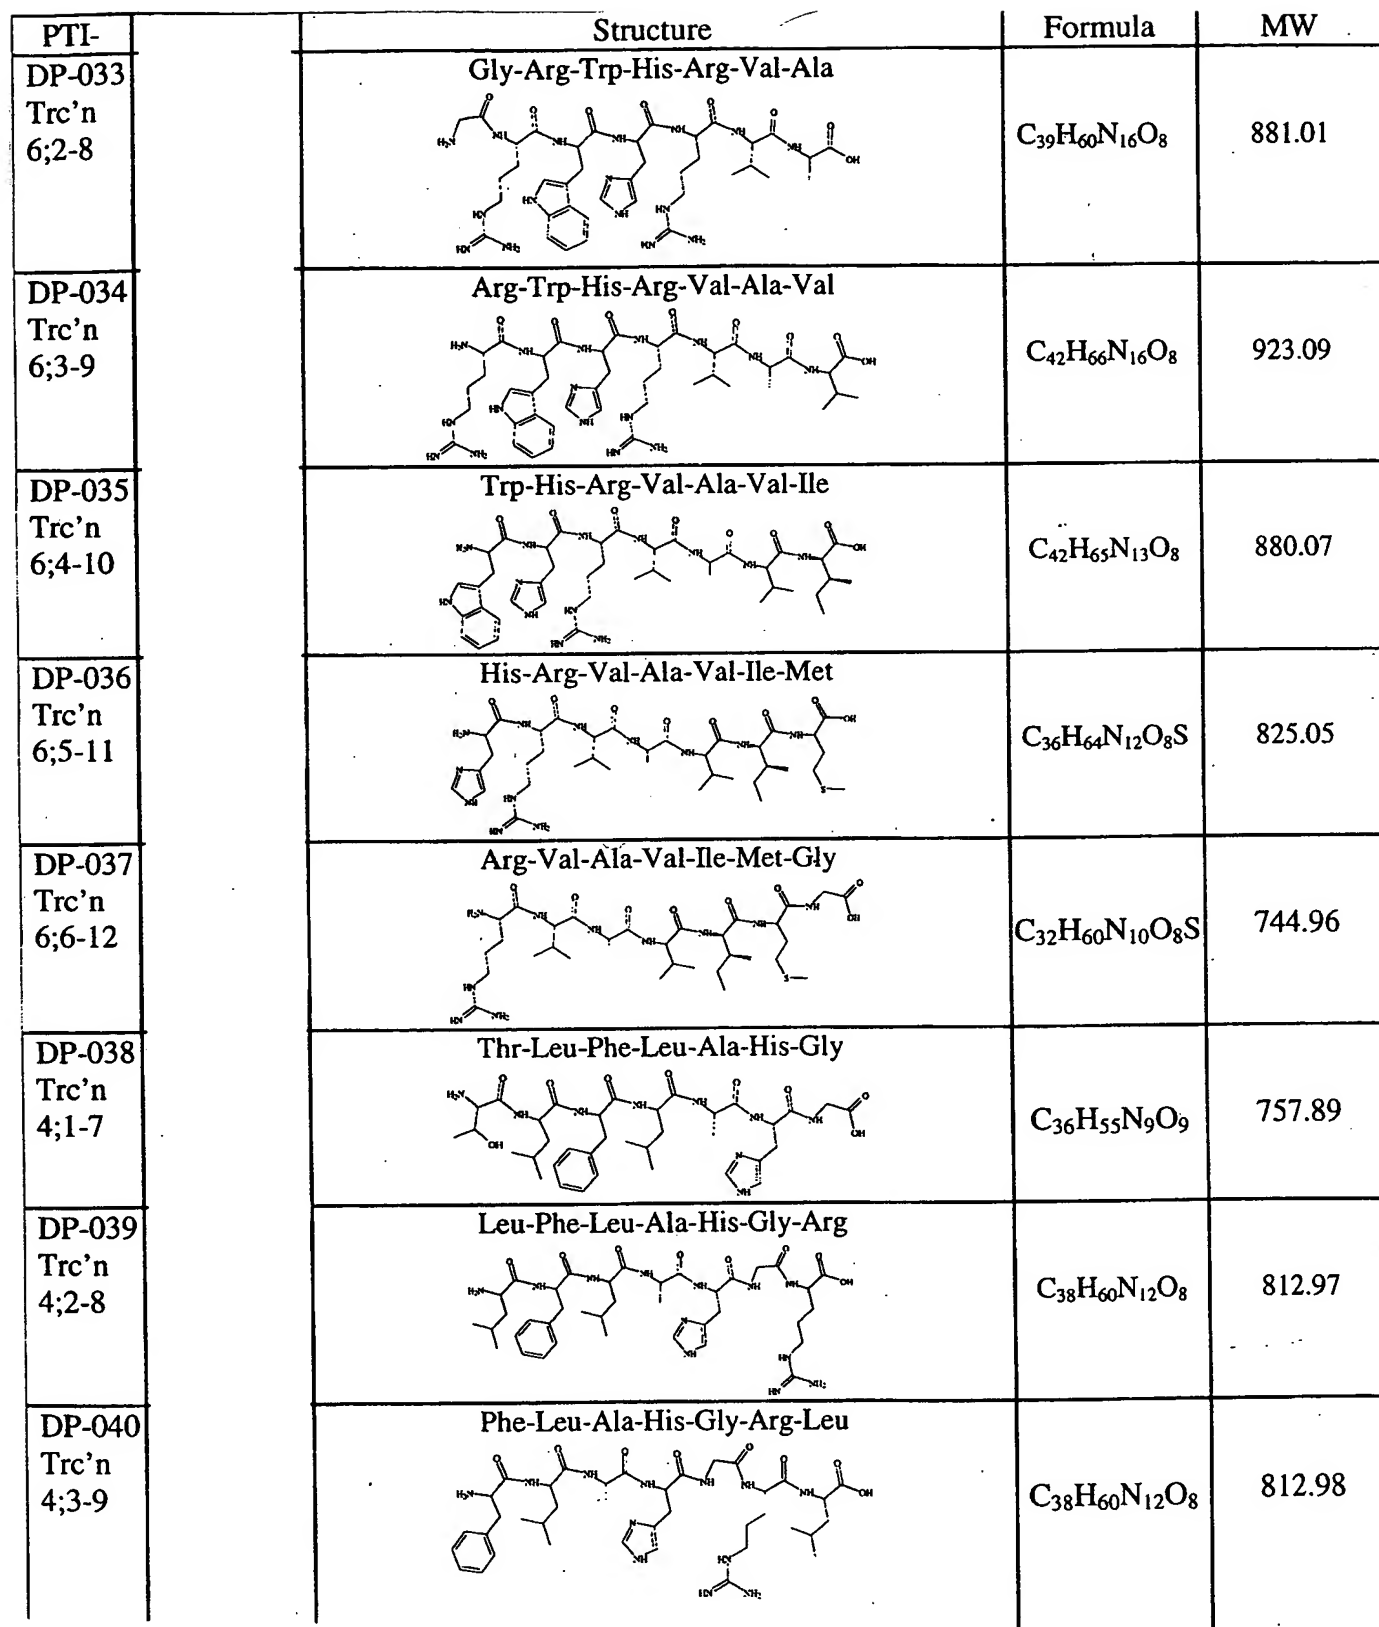 PTI- Structure Formula MW
DP-033
Trc'n
6;2-8
Gly-Arg-Trp-His-Arg-Val-Ala
C39H60N16O8
881.01
DP-034
Trc'n
6;3-9
Arg-Trp-His-Arg-Val-Ala-Val
C42H66N16O8
923.09
DP-035
Trc'n
6;4-10
Trp-His-Arg-Val-Ala-Val-Ile
C42H65N13O8
880.07
DP-036
Trc'n
6;5-11
His-Arg-Val-Ala-Val-Ile-Met
C36H64N12O8S
825.05
DP-037
Trc'n
6;6-12
Arg-Val-Ala-Val-Ile-Met-Gly
C32H60N10O8S
744.96
DP-038
Trc'n
4;1-7
Thr-Leu-Phe-Leu-Ala-His-Gly
C36H55N9O9
757.89
DP-039
Trc'n
4;2-8
Leu-Phe-Leu-Ala-His-Gly-Arg
C38H60N12O8
812.97
DP-040
Trc'n
4;3-9
Phe-Leu-Ala-His-Gly-Arg-Leu
C38H60N12O8
812.98